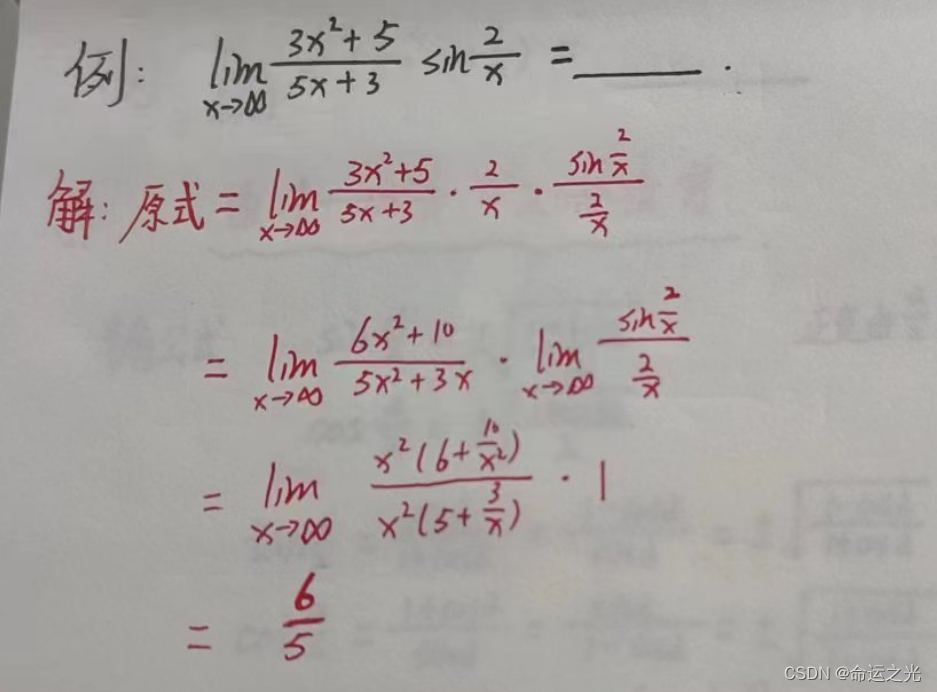 例: lim x→∞ (3x²+5)/(5x+3) sin 2/x = ______ .
解: 原式 = lim x→∞ (3x²+5)/(5x+3) · 2/x · (sin 2/x)/(2/x)
= lim x→∞ (6x²+10)/(5x²+3x) · lim x→∞ (sin 2/x)/(2/x)
= lim x→∞ x²(6+10/x²)/x²(5+3/x) · 1
= 6/5
CSDN @命运之光